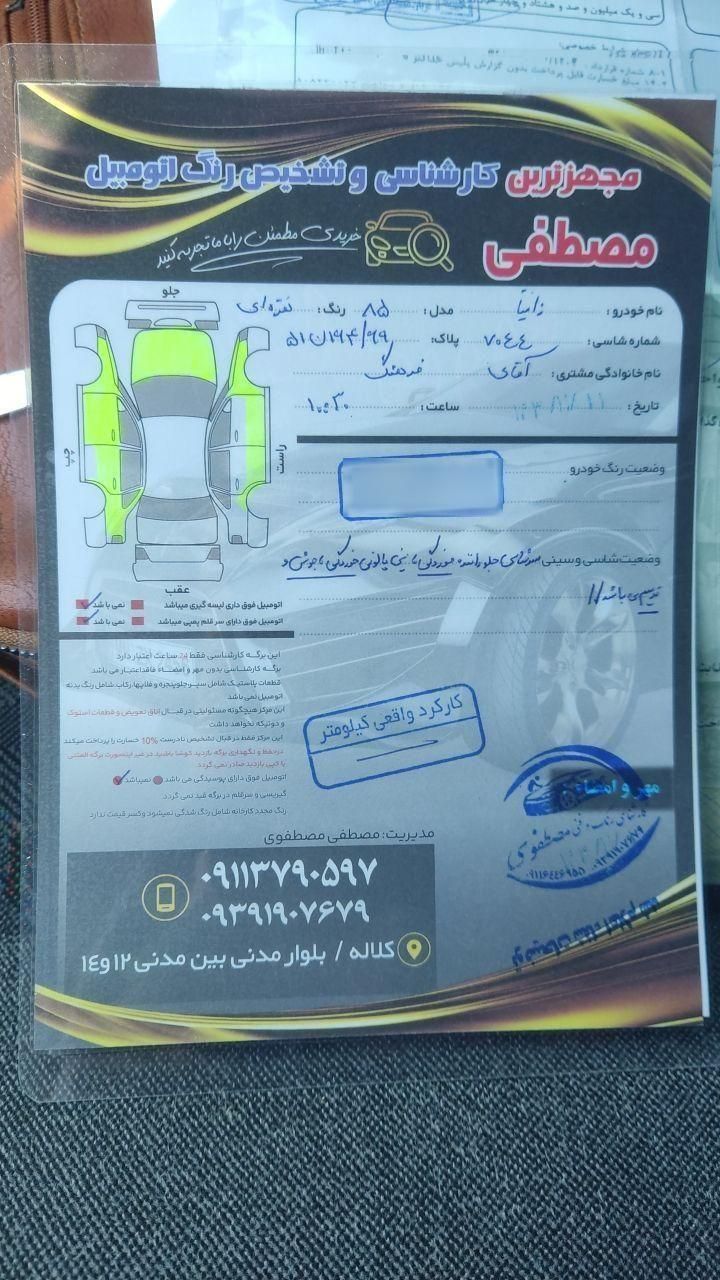 سی و یک میلیون و صد و هشتاد و چهار
مجهزترین کارشناسی و تشخیص رنگ اتومبیل
مصطفی
خریدی مطمئن را با ما تجربه کنید
جلو
چپ
راست
عقب
نام خودرو: زانتیا مدل: ۸۵ رنگ: نقره‌ای
شماره شاسی: ۷۰۴۴ پلاک:
نام خانوادگی مشتری: آقای فرهنگ
تاریخ: ساعت: ۱۰:۳۰
وضعیت رنگ خودرو
وضعیت شاسی و سینی سرشاسی جلو راننده خوردگی
ترمیم می باشد //
اتومبیل فوق داری لیسه گیری میباشد نمی با شد
اتومبیل فوق داری سر قلم پمپی میباشد نمی با شد
این برگه کارشناسی فقط 24 ساعت اعتبار دارد
برگه کارشناسی بدون مهر و امضاء فاقد اعتبار می باشد
قطعات پلاستیک شامل سپر، جلو پنجره و فلاپها، رکاب، شامل رنگ بدنه
اتومبیل نمی باشد
این مرکز هیچگونه مسئولیتی در قبال اتاق تعویض و قطعات استوک
و دوتیکه نخواهد داشت
این مرکز فقط در قبال تشخیص نادرست 10% خسارت را پرداخت میکند
در حفظ و نگهداری برگه بازدید کوشا باشید در غیر اینصورت برگه المثنی
یا کپی بازدید صادر نمی گردد
اتومبیل فوق دارای پوسیدگی می باشد نمیباشد
گیریسی و سرقلم در برگه قید نمی گردد
رنگ مجدد کارخانه شامل رنگ شدگی نمیشود و کسر قیمت ندارد
کارکرد واقعی کیلومتر
مهر و امضاء
مصطفوی
۰۹۳۹۱۹۰۷۶۷۹
مدیریت: مصطفی مصطفوی
۰۹۱۱۳۷۹۰۵۹۷
۰۹۳۹۱۹۰۷۶۷۹
کلاله / بلوار مدنی بین مدنی ۱۲ و ۱۴